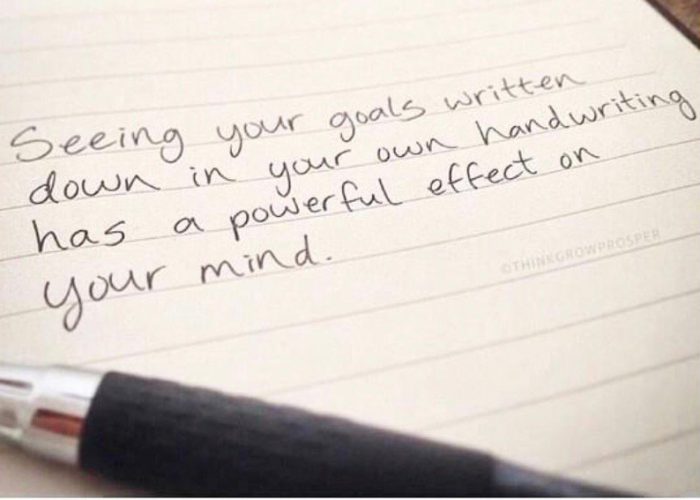 Seeing your goals written
down in your own handwriting
has a powerful effect on
your mind.
©THINKGROWPROSPER